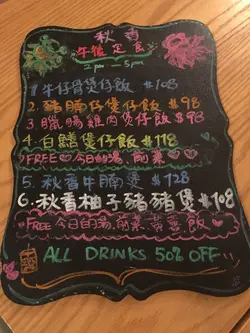 秋香
午後定食
2pm — 5pm
1. 牛仔骨煲仔飯 $108
2. 豬腩仔煲仔飯 $98
3. 臘腸雞肉煲仔飯 $98
4. 白鱔煲仔飯 $118
FREE 今日的湯, 前菜
5. 秋香牛腩煲 $128
6. 秋香柚子豬豬煲 $108
FREE 今日的湯, 前菜 飯
ALL DRINKS 50% OFF